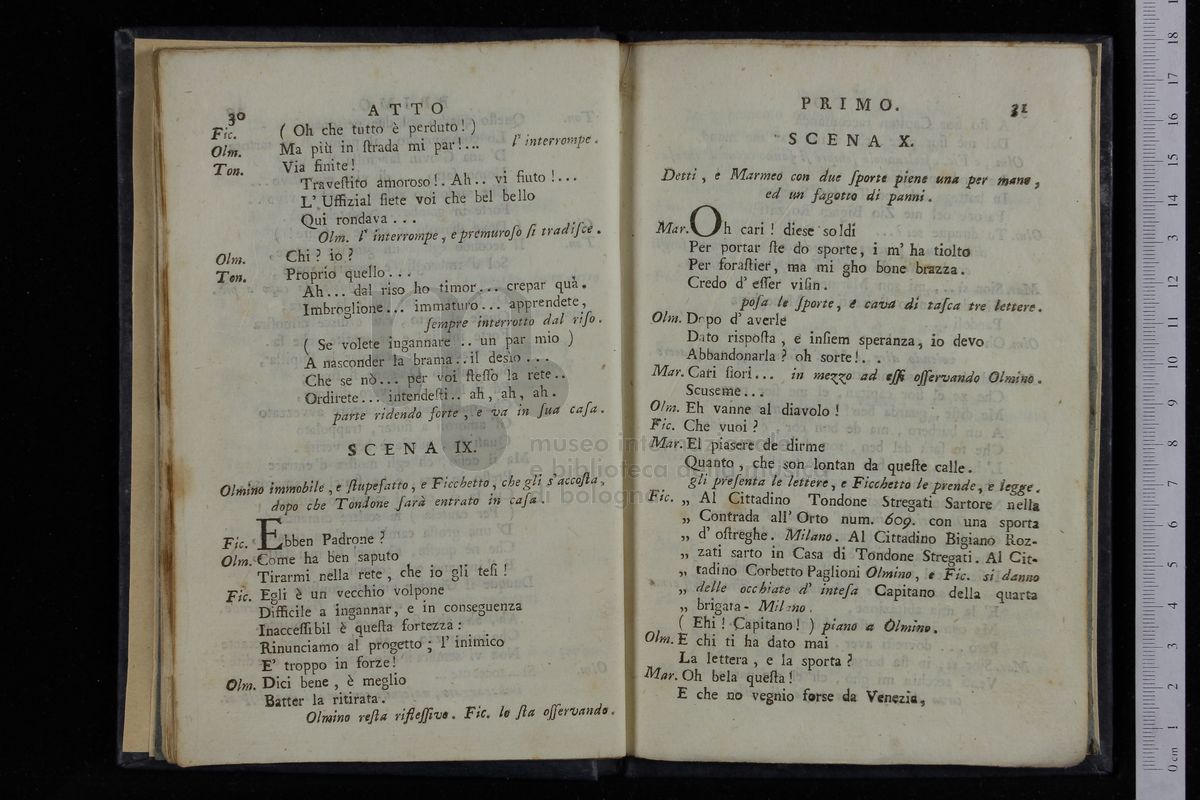 30
ATTO
Fic. ( Oh che tutto è perduto! )
Olm. Ma più in ſtrada mi par!... l' interrompe.
Ton. Via finite!
Traveſtito amoroso!. Ah.. vi fiuto!...
L' Uffizial ſiete voi che bel bello
Qui rondava...
Olm. l' interrompe, e premuroſo ſi tradiſce.
Olm. Chi? io?
Ton. Proprio quello...
Ah... dal riso ho timor... crepar quà.
Imbroglione... immaturo... apprendete,
ſempre interrotto dal riſo.
( Se volete ingannare.. un par mio )
A nasconder la brama.. il desio...
Che se nò... per voi ſteſſo la rete..
Ordirete... intendeſti.. ah, ah, ah.
parte ridendo forte, e va in ſua caſa.
SCENA IX.
Olmino immobile, e ſtupefatto, e Ficchetto, che gli s'accoſta,
dopo che Tondone ſarà entrato in caſa.
Fic. Ebben Padrone?
Olm. Come ha ben saputo
Tirarmi nella rete, che io gli teſi!
Fic. Egli è un vecchio volpone
Difficile a ingannar, e in conseguenza
Inacceſſibil è queſta fortezza:
Rinunciamo al progetto; l' inimico
E' troppo in forze!
Olm. Dici bene, è meglio
Batter la ritirata.
Olmino reſta rifleſſivo. Fic. lo ſta oſſervando.
PRIMO.
31
SCENA X.
Detti, e Marmeo con due ſporte piene una per mano,
ed un fagotto di panni.
Mar. Oh cari! diese soldi
Per portar ſte do sporte, i m' ha tiolto
Per foraſtier, ma mi gho bone brazza.
Credo d' eſſer viſin.
poſa le ſporte, e cava di taſca tre lettere.
Olm. Dopo d' averle
Dato rispoſta, e inſiem speranza, io devo
Abbandonarla? oh sorte!..
Mar. Cari ſiori... in mezzo ad eſſi oſſervando Olmino.
Scuseme...
Olm. Eh vanne al diavolo!
Fic. Che vuoi?
Mar. El piasere de dirme
Quanto, che son lontan da queſte calle.
gli preſenta le lettere, e Ficchetto le prende, e legge.
Fic. „ Al Cittadino Tondone Stregati Sartore nella
„ Contrada all' Orto num. 609. con una sporta
„ d' oſtreghe. Milano. Al Cittadino Bigiano Roz-
„ zati sarto in Casa di Tondone Stregati. Al Cit-
„ tadino Corbetto Paglioni Olmino, e Fic. si danno
„ delle occhiate d' inteſa Capitano della quarta
„ brigata - Milano.
( Ehi! Capitano! ) piano a Olmino.
Olm. E chi ti ha dato mai
La lettera, e la sporta?
Mar. Oh bela queſta!
E che no vegnio forse da Venezia,
museo internazionale
e biblioteca della musica
di bologna